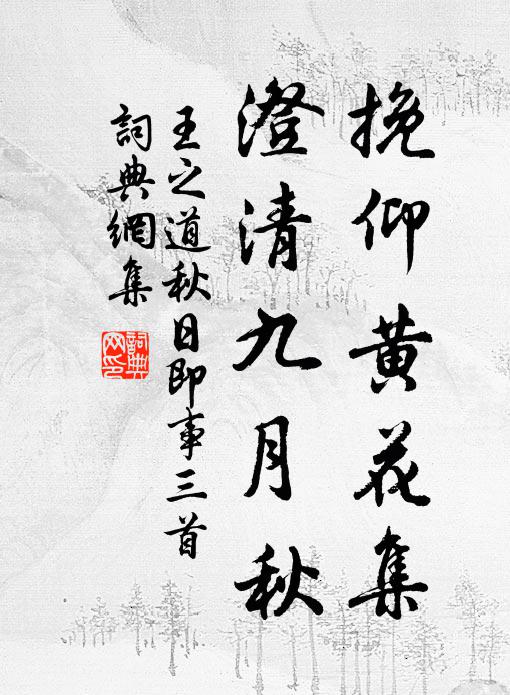 挽仰黄花集
澄清九月秋
王之道秋日即事三首
詞典網集
詞典网印